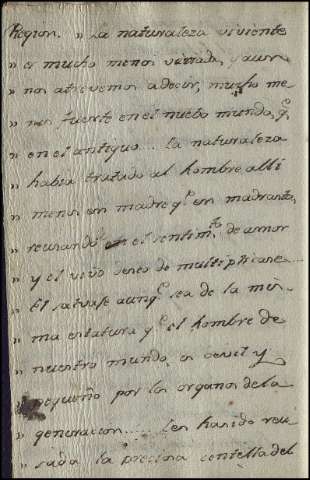 Region. „ La naturaleza viviente
„ es mucho menos variada, y aun
nos atrevemos a decir, mucho me-
nos fuerte en el nuebo mundo, q.e
„ en el antiguo... la naturaleza
„ habia tratado al hombre alli
„ menos en madre q.e en madrastra,
„ reusando el sentim.to de amor
„ y el vivo deseo de multiplicarse...
„ El salvaje aunq.e sea de la mis-
„ ma estatura q.e el hombre de
„ nuestro mundo, es devil y
„ pequeño por los organos de la
„ generacion...... les ha sido reu-
„ sada la preciosa centella del